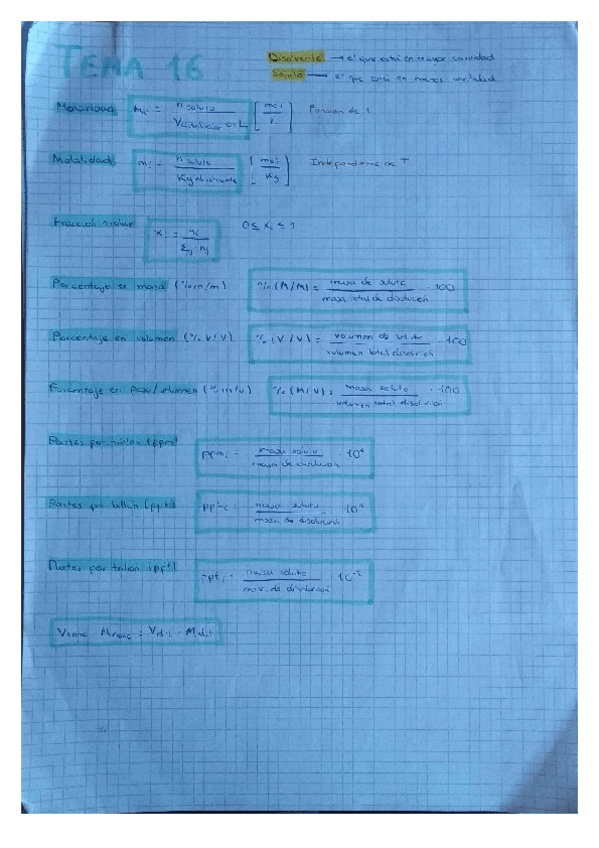 TEMA 16
Disolvente → el que está en mayor cantidad
Soluto → el que está en menos cantidad
Molaridad M = n soluto / V disolución en L [mol / L] Función de T
Molalidad m = n soluto / Kg disolvente [mol / Kg] Independiente de T
Fracción molar xi = ni / Σj nj 0 ≤ xi ≤ 1
Porcentaje en masa (% m/m) % (M/M) = masa de soluto / masa total de disolución · 100
Porcentaje en volumen (% V/V) % (V/V) = volumen de soluto / volumen total disolución · 100
Porcentaje en peso/volumen (% m/v) % (M/V) = masa soluto / volumen total disolución · 100
Partes por millón (ppm) ppm = masa soluto / masa de disolución · 10⁶
Partes por billón (ppb) masa soluto / masa de disolución
Partes por trillón (ppt) ppt = masa soluto / masa de disolución
Vconc · Mconc = Vdil · Mdil